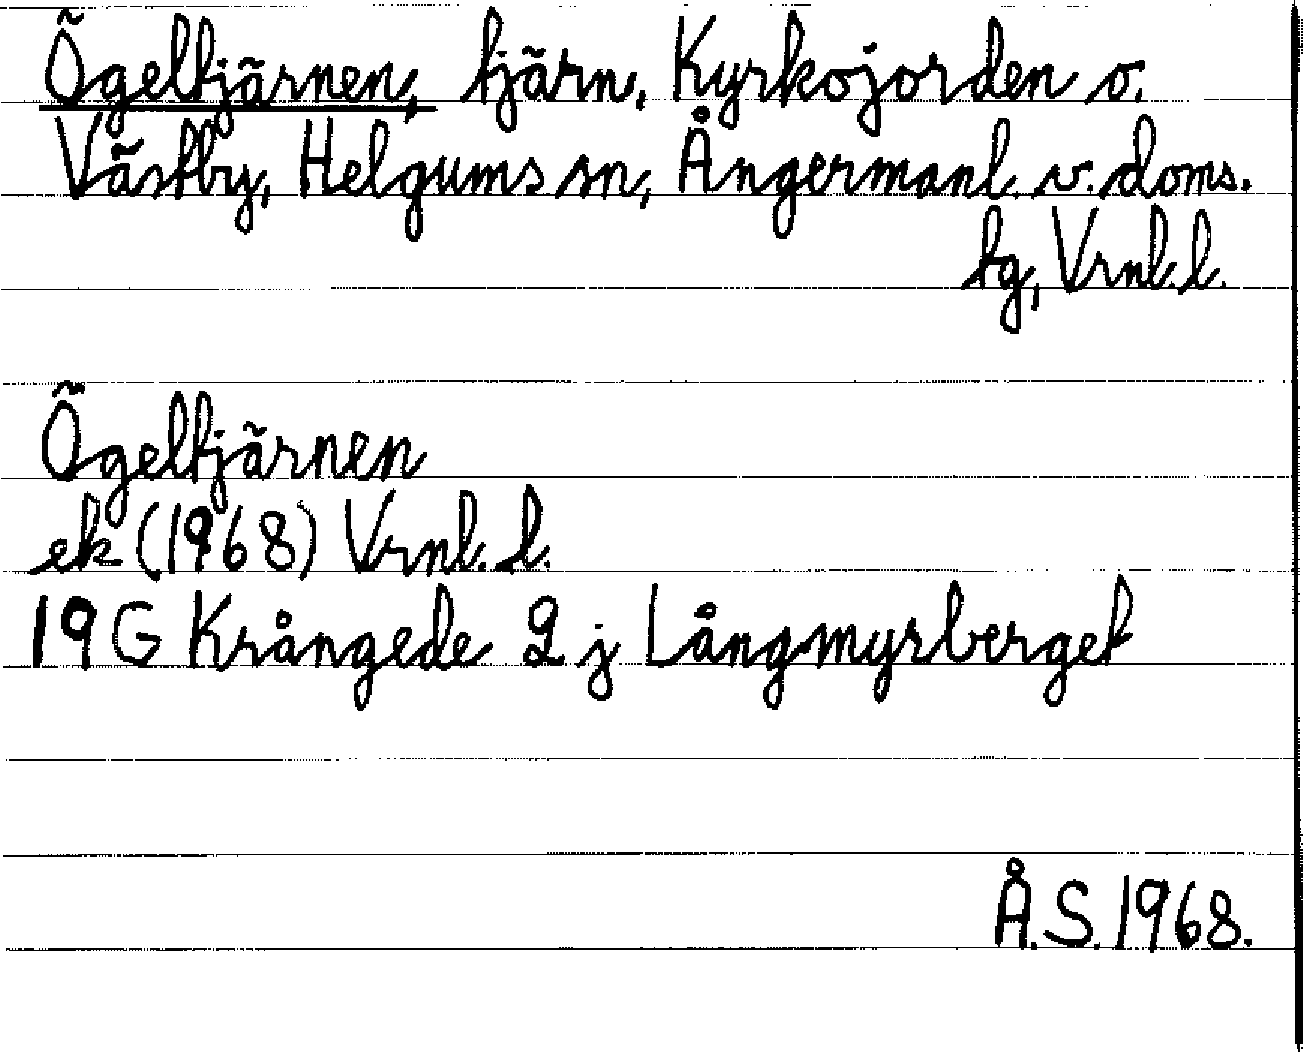 Ögeltjärnen, tjärn, Kyrkojorden o.
Västby, Helgums sn, Ångermanl. v. doms.
tg, Vrnl. l.
Ögeltjärnen
ek (1968) Vrnl. l.
19G Krångede 2 j Långmyrberget
Å.S. 1968.